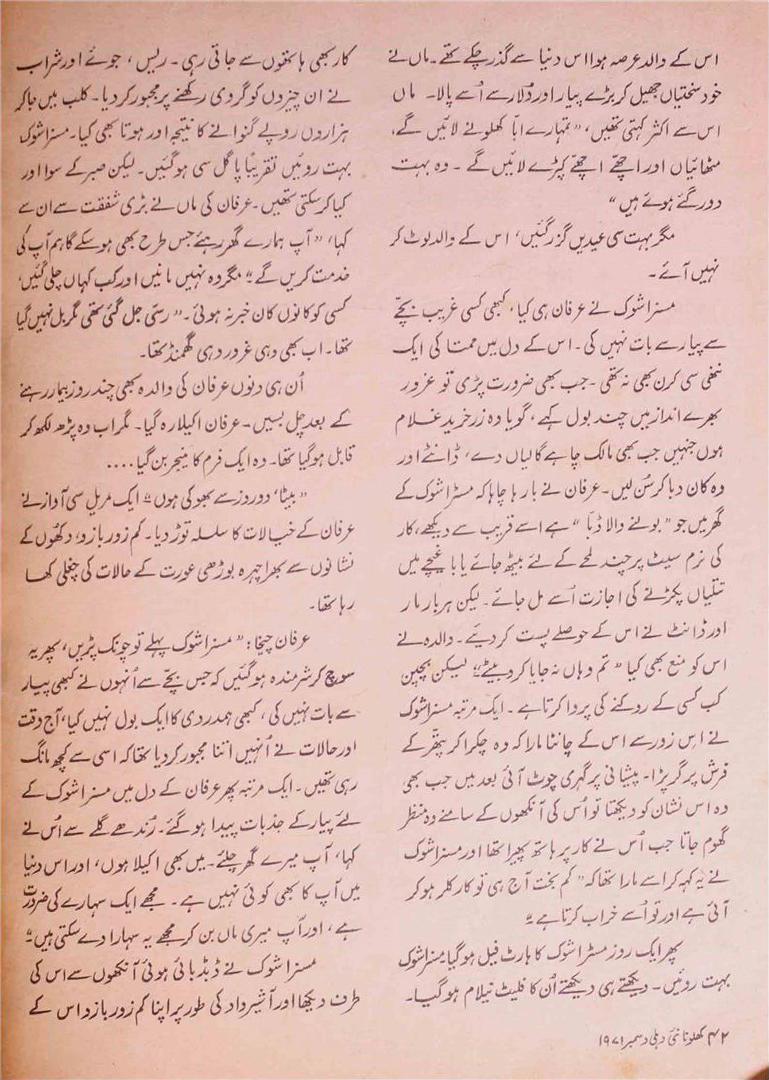 اس کے والد عرصہ ہوا اس دنیا سے گذر چکے تھے۔ ماں نے
خود سختیاں جھیل کر بڑے پیار اور دُلار سے اُسے پالا۔ ماں
اس سے اکثر کہتی تھیں، "تمہارے ابّا کھلونے لائیں گے،
مٹھائیاں اور اچھے اچھے کپڑے لائیں گے۔ وہ بہت
دور گئے ہوئے ہیں"
مگر بہت سی عیدیں گزر گئیں، اس کے والد لوٹ کر
نہیں آئے۔
مسز اشوک نے عرفان ہی کیا، کبھی کسی غریب بچّے
سے پیار سے بات نہیں کی۔ اس کے دل میں ممتا کی ایک
ننھی سی کرن بھی نہ تھی۔ جب بھی ضرورت پڑی تو غرور
بھرے انداز میں چند بول کہے، گویا وہ زر خرید غلام
ہوں جنہیں جب بھی مالک چاہے گالیاں دے، ڈانٹے اور
وہ کان دبا کر سُن لیں۔ عرفان نے بارہا چاہا کہ مسٹر اشوک کے
گھر میں جو "بولنے والا ڈبّا" ہے اسے قریب سے دیکھے، کار
کی نرم سیٹ پر چند لمحے کے لئے بیٹھ جائے یا باغیچے میں
تتلیاں پکڑنے کی اجازت اُسے مل جائے۔ لیکن ہر بار مار
اور ڈانٹ نے اس کے حوصلے پست کر دیئے۔ والدہ نے
اس کو منع بھی کیا "تم وہاں نہ جایا کرو بیٹے" لیکن بچپن
کب کسی کے روکنے کی پروا کرتا ہے۔ ایک مرتبہ مسز اشوک
نے اس زور سے اس کے چانٹا مارا کہ وہ چکرا کر پتھر کے
فرش پر گر پڑا۔ پیشانی پر گہری چوٹ آئی بعد میں جب بھی
وہ اس نشان کو دیکھتا تو اُس کی آنکھوں کے سامنے وہ منظر
گھوم جاتا جب اُس نے کار پر ہاتھ پھیرا تھا اور مسز اشوک
نے یہ کہہ کر اسے مارا تھا کہ "کم بخت آج ہی تو کار کلر ہو کر
آئی ہے اور تو اُسے خراب کرتا ہے"
پھر ایک روز مسٹر اشوک کا ہارٹ فیل ہو گیا مسز اشوک
بہت روئیں۔ دیکھتے ہی دیکھتے اُن کا فلیٹ نیلام ہو گیا۔
کار بھی ہاتھوں سے جاتی رہی۔ ریس، جوئے اور شراب
نے ان چیزوں کو گروی رکھنے پر مجبور کر دیا۔ کلب میں جا کر
ہزاروں روپے گنوانے کا نتیجہ اور ہوتا بھی کیا۔ مسز اشوک
بہت روئیں تقریباً پاگل سی ہو گئیں۔ لیکن صبر کے سوا اور
کیا کر سکتی تھیں۔ عرفان کی ماں نے بڑی شفقت سے ان سے
کہا، "آپ ہمارے گھر رہئے جس طرح بھی ہو سکے گا ہم آپ کی
خدمت کریں گے" مگر وہ نہیں مانیں اور کب کہاں چلی گئیں،
کسی کو کانوں کان خبر نہ ہوئی۔ "رسّی جل گئی تھی مگر بل نہیں گیا
تھا۔ اب بھی وہی غرور وہی گھمنڈ تھا۔
اُن ہی دنوں عرفان کی والدہ بھی چند روز بیمار رہنے
کے بعد چل بسیں۔ عرفان اکیلا رہ گیا۔ مگر اب وہ پڑھ لکھ کر
قابل ہو گیا تھا۔ وہ ایک فرم کا منیجر بن گیا ....
"بیٹا، دو روز سے بھوکی ہوں" ایک مریل سی آواز نے
عرفان کے خیالات کا سلسلہ توڑ دیا۔ کم زور بازو، دکھوں کے
نشانوں سے بھرا چہرہ بوڑھی عورت کے حالات کی چغلی کھا
رہا تھا۔
عرفان چیخا: "مسز اشوک پہلے تو چونک پڑیں، پھر یہ
سوچ کر شرمندہ ہو گئیں کہ جس بچّے سے اُنہوں نے کبھی پیار
سے بات نہیں کی، کبھی ہمدردی کا ایک بول نہیں کہا، آج وقت
اور حالات نے اُنہیں اتنا مجبور کر دیا تھا کہ اسی سے کچھ مانگ
رہی تھیں۔ ایک مرتبہ پھر عرفان کے دل میں مسز اشوک کے
لئے پیار کے جذبات پیدا ہو گئے۔ رُندھے گلے سے اُس نے
کہا، آپ میرے گھر چلئے۔ میں بھی اکیلا ہوں، اور اس دنیا
میں آپ کا بھی کوئی نہیں ہے۔ مجھے ایک سہارے کی ضرورت
ہے، اور آپ میری ماں بن کر مجھے یہ سہارا دے سکتی ہیں"
مسز اشوک نے ڈبڈبائی ہوئی آنکھوں سے اس کی
طرف دیکھا اور آشیرواد کی طور پر اپنا کم زور بازو اس کے
۴۲ کھلونا نئی دہلی دسمبر ۱۹۷۱